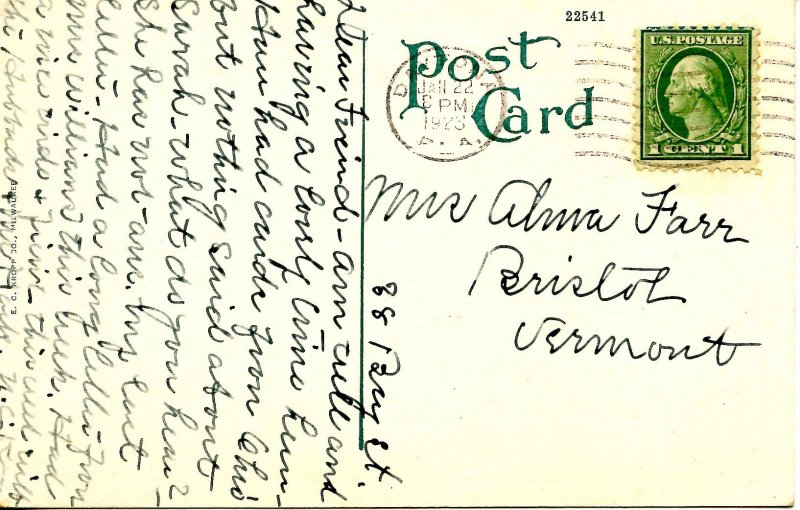 22541
Post
Card
JAN 22
8 PM
1923
P. A.
U.S. POSTAGE
1 CENT 1
Mrs Alma Farr
Bristol
Vermont
88 Bay St.
Dear Friend - am well and
having a lovely time here -
Have had cards from Ohio
but nothing said about
Sarah - what do you hear?
She has not ans. my last
letter - Had a long letter from
Mrs Williams this week. Had
a nice ride &
the Husbands
E. C. KROPP CO., MILWAUKEE